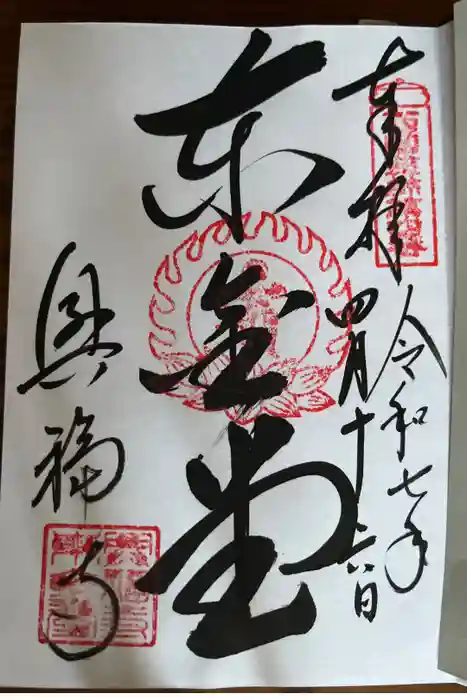 奉拝
令和七年
四月十六日
東金堂
興福寺